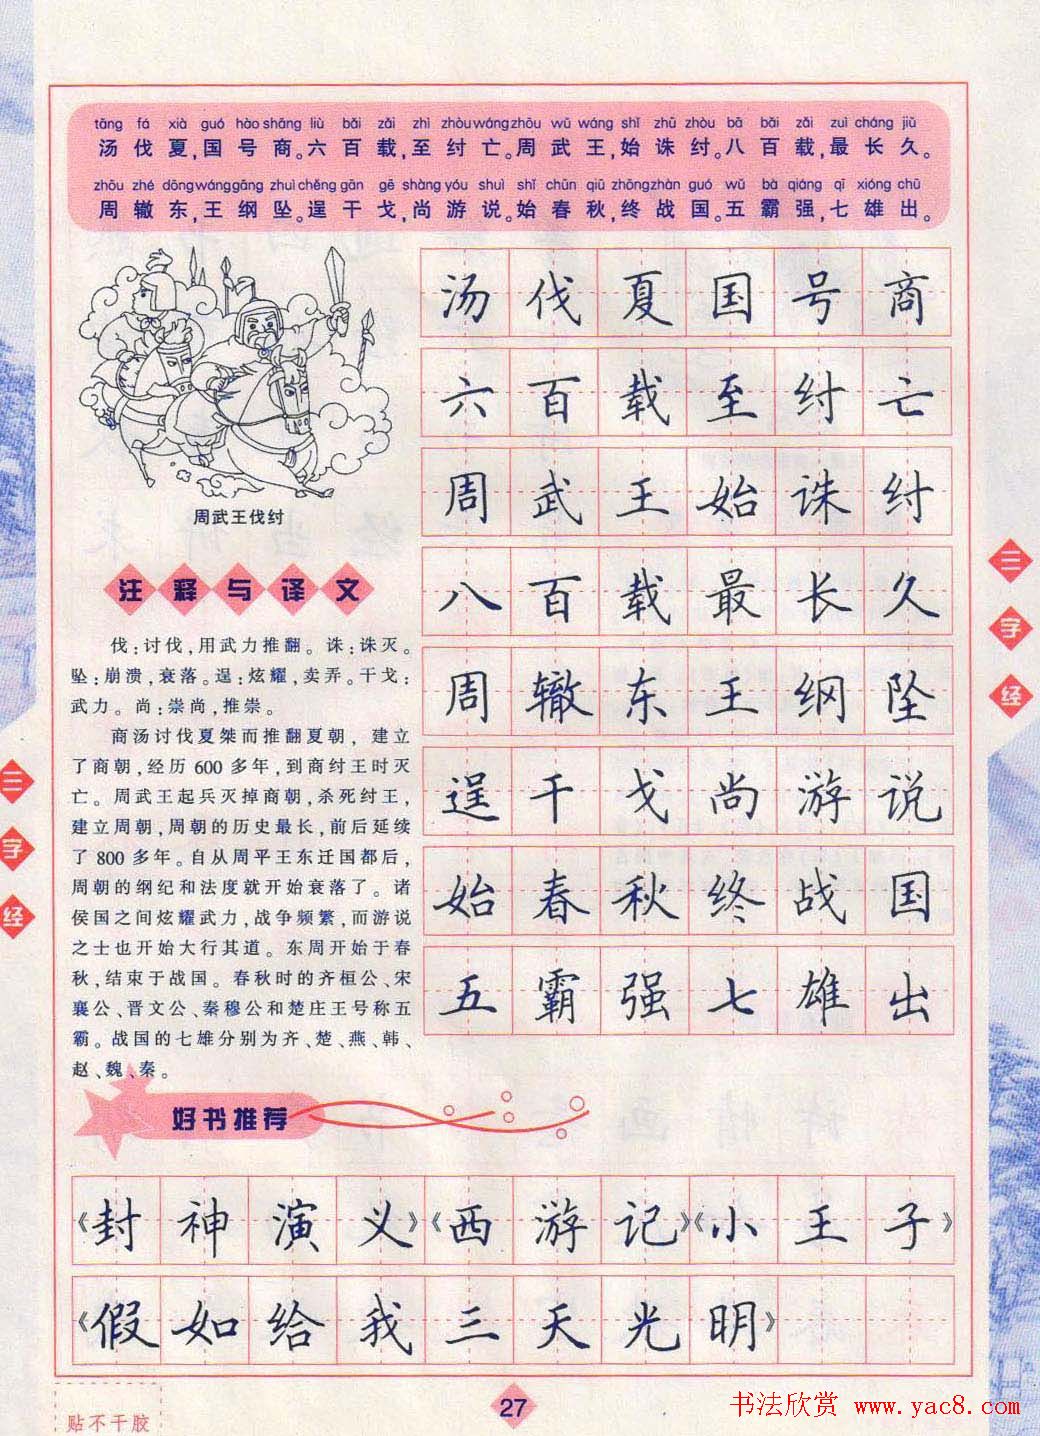 tāng fá xià guó hào shāng liù bǎi zǎi zhì zhòu wáng zhōu wǔ wáng shǐ zhū zhòu bā bǎi zǎi zuì cháng jiǔ
汤伐夏,国号商。六百载,至纣亡。周武王,始诛纣。八百载,最长久。
zhōu zhé dōng wáng gāng zhuì chěng gān gē shàng yóu shuì shǐ chūn qiū zhōng zhàn guó wǔ bà qiáng qī xióng chū
周辙东,王纲坠。逞干戈,尚游说。始春秋,终战国。五霸强,七雄出。
汤伐夏国号商
六百载至纣亡
周武王始诛纣
八百载最长久
周辙东王纲坠
逞干戈尚游说
始春秋终战国
五霸强七雄出
周武王伐纣
注释与译文
伐:讨伐,用武力推翻。诛:诛灭。
坠:崩溃,衰落。逞:炫耀,卖弄。干戈:
武力。尚:崇尚,推崇。
商汤讨伐夏桀而推翻夏朝,建立
了商朝,经历600多年,到商纣王时灭
亡。周武王起兵灭掉商朝,杀死纣王,
建立周朝,周朝的历史最长,前后延续
了800多年。自从周平王东迁国都后,
周朝的纲纪和法度就开始衰落了。诸
侯国之间炫耀武力,战争频繁,而游说
之士也开始大行其道。东周开始于春
秋,结束于战国。春秋时的齐桓公、宋
襄公、晋文公、秦穆公和楚庄王号称五
霸。战国的七雄分别为齐、楚、燕、韩、
赵、魏、秦。
三字经
三字经
好书推荐
《封神演义》《西游记》《小王子》
《假如给我三天光明》
贴不干胶
27
书法欣赏 www.yac8.com